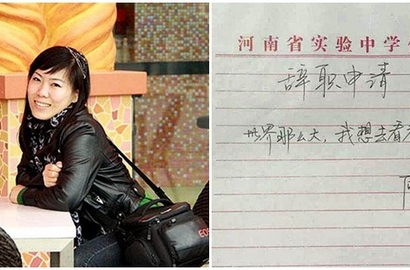 河南省实验中学
辞职申请
世界那么大,我想去看
EOS